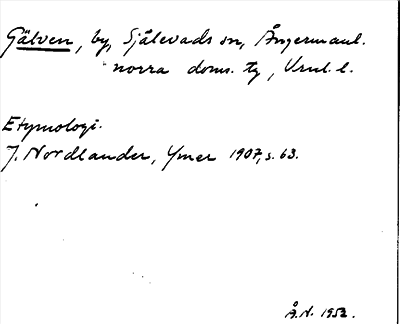 Gälven, by, Själevads sn, Ångermanl.
norra doms. tg, Vnl. l.
Etymologi.
J. Nordlander, Ymer 1907, s. 63.
Å.N. 1952.